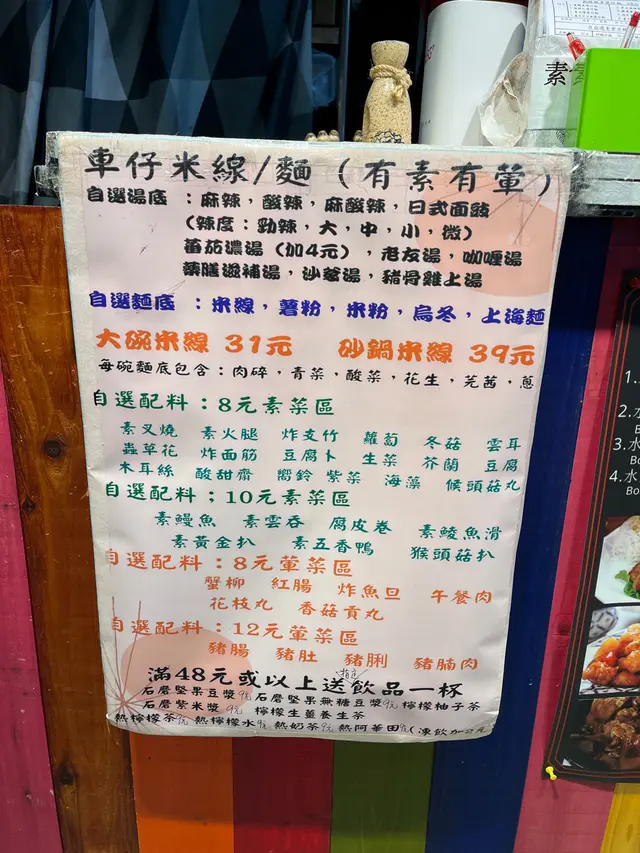 車仔米線/麵（有素有葷）
自選湯底：麻辣，酸辣，麻酸辣，日式面豉
（辣度：勁辣，大，中，小，微）
蕃茄濃湯（加4元），老友湯，咖喱湯
藥膳滋補湯，沙爹湯，豬骨雞上湯
自選麵底：米線，薯粉，米粉，烏冬，上海麵
大碗米線 31元 砂鍋米線 39元
每碗麵底包含：肉碎，青菜，酸菜，花生，芫茜，蔥
自選配料：8元素菜區
素叉燒 素火腿 炸支竹 蘿蔔 冬菇 雲耳
蟲草花 炸面筋 豆腐卜 生菜 芥蘭 豆腐
木耳絲 酸甜齋 嚮鈴 紫菜 海藻 猴頭菇丸
自選配料；10元素菜區
素鰻魚 素雲吞 腐皮卷 素鯪魚滑
素黃金扒 素五香鴨 猴頭菇扒
自選配料：8元葷菜區
蟹柳 紅腸 炸魚旦 午餐肉
花枝丸 香菇貢丸
自選配料：12元葷菜區
豬腸 豬肚 豬脷 豬腩肉
滿48元或以上送指定飲品一杯
石磨堅果豆漿9元 石磨堅果無糖豆漿9元 檸檬柚子茶
石磨紫米漿 9元 檸檬生薑養生茶
熱檸檬茶9元 熱檸檬水9元 熱奶茶9元 熱阿華田9元（凍飲加2元
素
1.
2.水
3.水
Bo
4.水
Bo